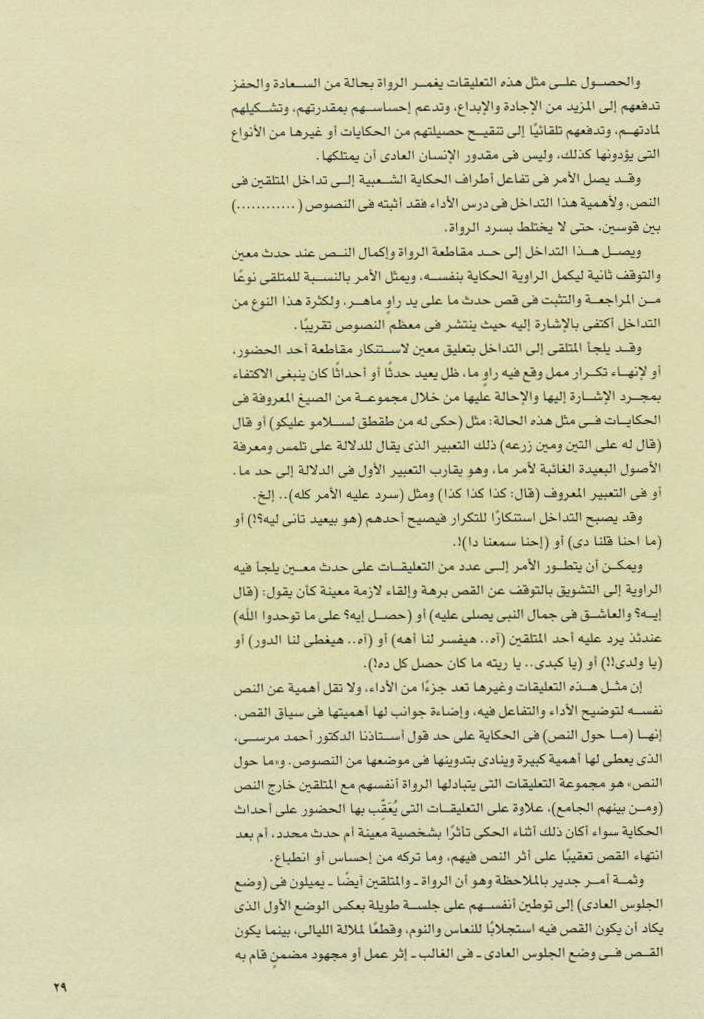 والحصول على مثل هذه التعليقات يغمر الرواة بحالة من السعادة والحفز
تدفعهم إلى المزيد من الإجادة والإبداع، وتدعم إحساسهم بمقدرتهم، وتشكيلهم
لمادتهم، وتدفعهم تلقائيًا إلى تنقيح حصيلتهم من الحكايات أو غيرها من الأنواع
التى يؤدونها كذلك، وليس فى مقدور الإنسان العادى أن يمتلكها.
وقد يصل الأمر فى تفاعل أطراف الحكاية الشعبية إلى تداخل المتلقين فى
النص، ولأهمية هذا التداخل فى درس الأداء فقد أثبته فى النصوص (............)
بين قوسين، حتى لا يختلط بسرد الرواة.
ويصل هذا التداخل إلى حد مقاطعة الرواة وإكمال النص عند حدث معين
والتوقف ثانية ليكمل الراوية الحكاية بنفسه، ويمثل الأمر بالنسبة للمتلقى نوعًا
من المراجعة والتثبت فى قص حدث ما على يد راوٍ ماهر، ولكثرة هذا النوع من
التداخل أكتفى بالإشارة إليه حيث ينتشر فى معظم النصوص تقريبًا.
وقد يلجأ المتلقى إلى التداخل بتعليق معين لاستنكار مقاطعة أحد الحضور،
أو لإنهاء تكرار ممل وقع فيه راوٍ ما، ظل يعيد حدثًا أو أحداثًا كان ينبغى الاكتفاء
بمجرد الإشارة إليها والإحالة عليها من خلال مجموعة من الصيغ المعروفة فى
الحكايات فى مثل هذه الحالة: مثل (حكى له من طقطق لسلامو عليكو) أو قال
(قال له على التين ومين زرعه) ذلك التعبير الذى يقال للدلالة على تلمس ومعرفة
الأصول البعيدة الغائبة لأمر ما، وهو يقارب التعبير الأول فى الدلالة إلى حد ما.
أو فى التعبير المعروف (قال: كذا كذا كذا) ومثل (سرد عليه الأمر كله).. إلخ.
وقد يصبح التداخل استنكارًا للتكرار فيصيح أحدهم (هو بيعيد تانى ليه؟!) أو
(ما احنا قلنا دى) أو (إحنا سمعنا دا)!.
ويمكن أن يتطور الأمر إلى عدد من التعليقات على حدث معين يلجأ فيه
الراوية إلى التشويق بالتوقف عن القص برهة وإلقاء لازمة معينة كأن يقول: (قال
إيه؟ والعاشق فى جمال النبى يصلى عليه) أو (حصل إيه؟ على ما توحدوا الله)
عندئذ يرد عليه أحد المتلقين (آه.. هيفسر لنا أهه) أو (آه.. هيغطى لنا الدور) أو
(يا ولدى!!) أو (يا كبدى.. يا ريته ما كان حصل كل ده!).
إن مثل هذه التعليقات وغيرها تعد جزءًا من الأداء، ولا تقل أهمية عن النص
نفسه لتوضيح الأداء والتفاعل فيه، وإضاءة جوانب لها أهميتها فى سياق القص.
إنها (ما حول النص) فى الحكاية على حد قول أستاذنا الدكتور أحمد مرسى،
الذى يعطى لها أهمية كبيرة وينادى بتدوينها فى موضعها من النصوص. و«ما حول
النص» هو مجموعة التعليقات التى يتبادلها الرواة أنفسهم مع المتلقين خارج النص
(ومن بينهم الجامع)، علاوة على التعليقات التى يُعَقِّب بها الحضور على أحداث
الحكاية سواء أكان ذلك أثناء الحكى تأثرًا بشخصية معينة أم حدث محدد، أم بعد
انتهاء القص تعقيبًا على أثر النص فيهم، وما تركه من إحساس أو انطباع.
وثمة أمر جدير بالملاحظة وهو أن الرواة ـ والمتلقين أيضًا ـ يميلون فى (وضع
الجلوس العادى) إلى توطين أنفسهم على جلسة طويلة بعكس الوضع الأول الذى
يكاد أن يكون القص فيه استجلابًا للنعاس والنوم، وقطعًا لملالة الليالى، بينما يكون
القص فى وضع الجلوس العادى ـ فى الغالب ـ إثر عمل أو مجهود مضمنٍ قام به
٢٩